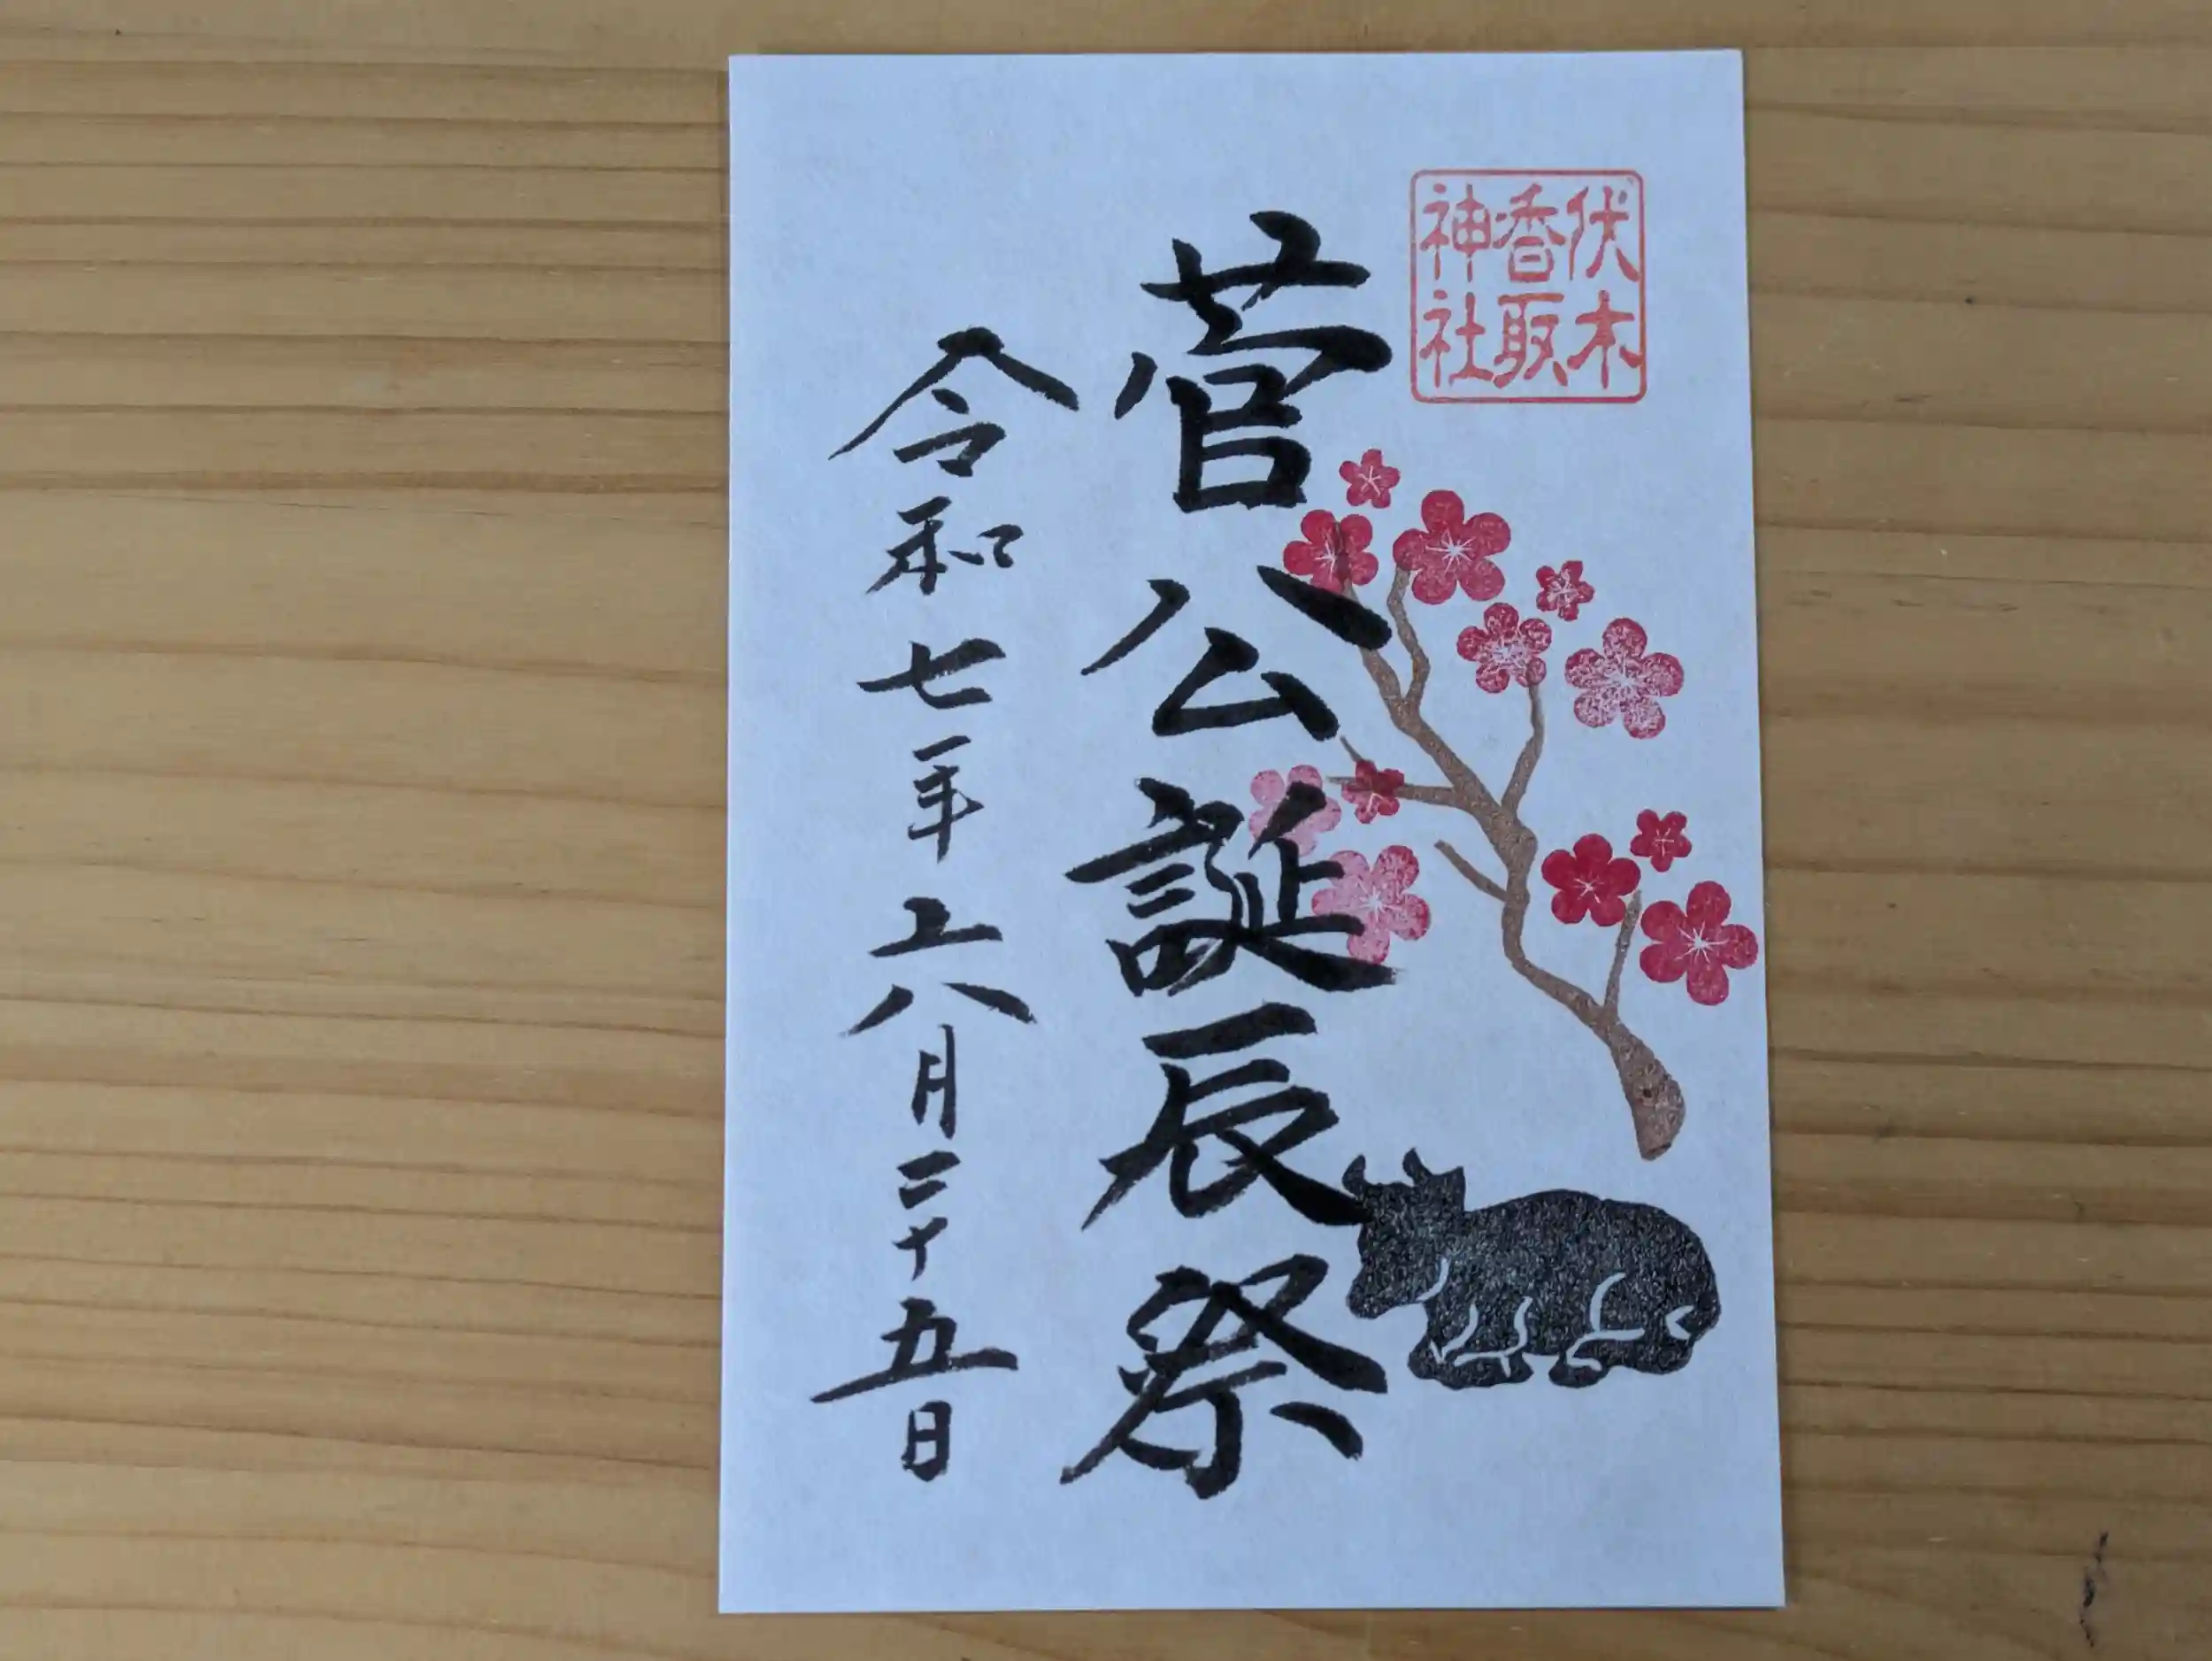 伏木
香取
神社
菅公誕辰祭
令和七年六月二十五日